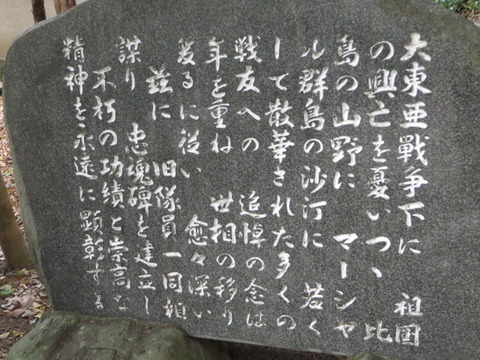 大東亜戰争下に　祖國
の興亡を憂いつゝ　比
島の山野に　マーシャ
ル群島の沙汀に　若く
して散華された多くの
戦友への　追悼の念は
年を重ね　世相の移り
変るに従い　愈々深い
茲に　旧隊員一同相
謀り　忠魂碑を建立し
不朽の功績と崇高な
精神を永遠に顕彰する